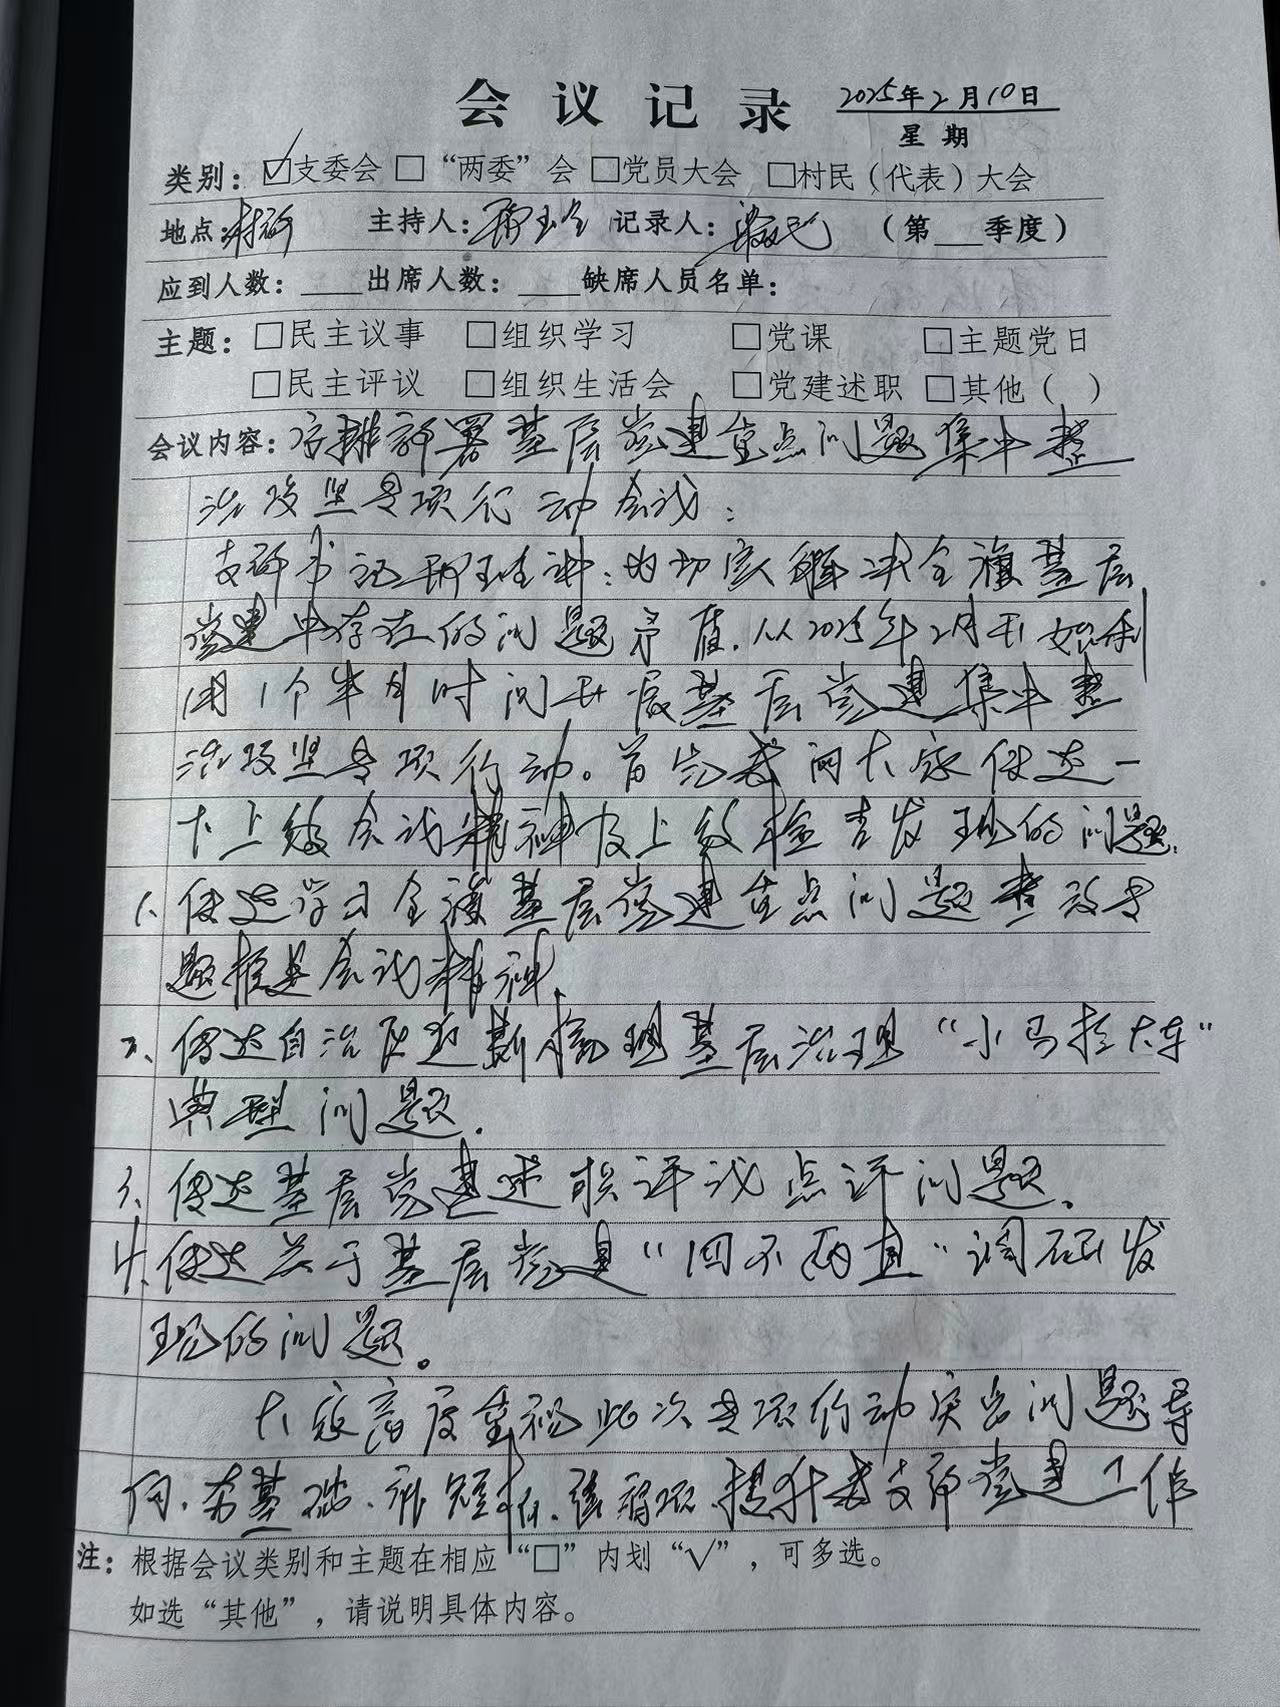 会议记录 2025年2月10日
星期
类别：☑支委会 □“两委”会 □党员大会 □村民（代表）大会
地点：村部 主持人： 记录人： （第___季度）
应到人数：____出席人数：____缺席人员名单：
主题：□民主议事 □组织学习 □党课 □主题党日
□民主评议 □组织生活会 □党建述职 □其他（ ）
会议内容：安排部署基层党建重点问题集中整
治攻坚专项行动会议：
支部书记 讲：为切实解决全旗基层
党建中存在的问题矛盾，从2025年2月开始利
用1个半月时间开展基层党建集中整
治攻坚专项行动。首先我向大家传达一
下上级会议精神及上级检查发现的问题。
1、传达学习全旗基层党建重点问题整改专
题推进会议精神。
2、传达自治区 基层治理“小马拉大车”
典型问题。
3、传达基层党建述职评议点评问题。
4、传达关于基层党建“四不两直”调研发
现的问题。
大家高度重视此次专项行动突出问题导
向、夯基础、补短板、强弱项、提升我支部党建工作
注：根据会议类别和主题在相应“□”内划“√”，可多选。
如选“其他”，请说明具体内容。